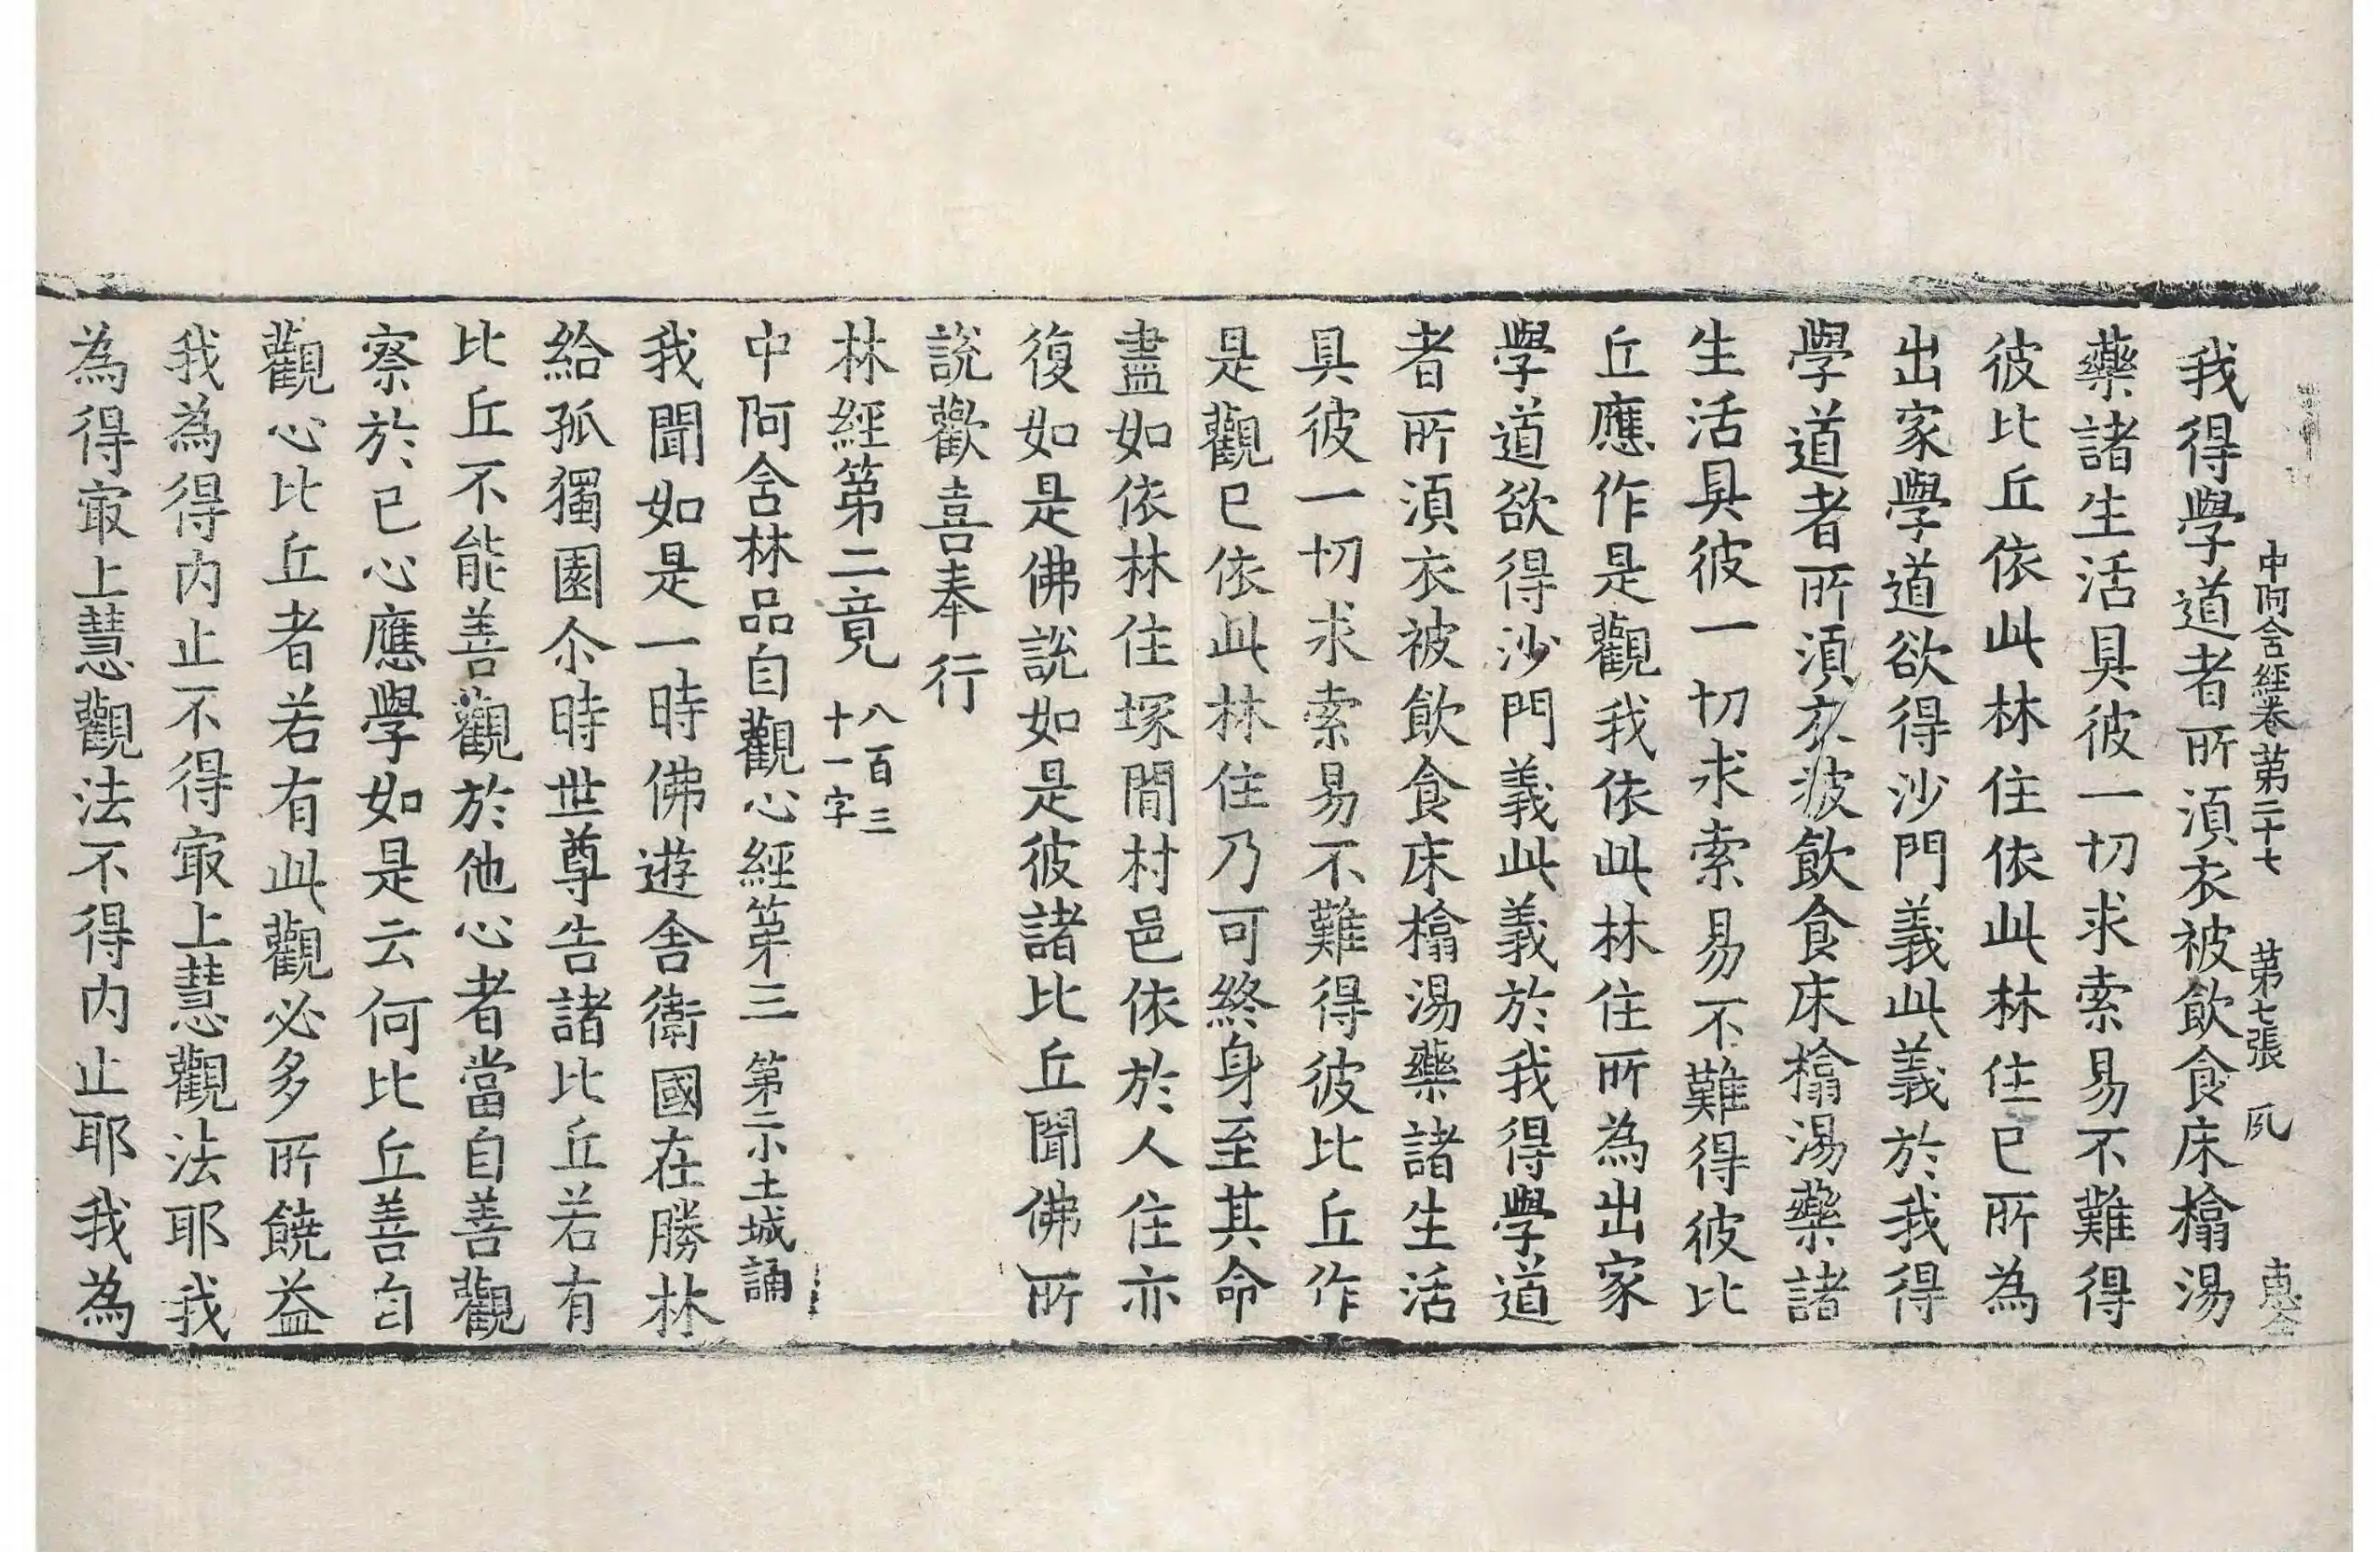 中阿含經卷第二十七　第七張　夙
我得學道者所湏衣被飲食床榻湯
藥諸生活具彼一切求索易不難得
彼比丘依此林住依此林住已所為
出家學道欲得沙門義此義於我得
學道者所湏衣被飲食床榻湯藥諸
生活具彼一切求索易不難得彼比
丘應作是觀我依此林住所為出家
學道欲得沙門義此義於我得學道
者所湏衣被飲食床榻湯藥諸生活
具彼一切求索易不難得彼比丘作
是觀已依此林住乃可終身至其命
盡如依林住塚間村邑依於人住亦
復如是佛說如是彼諸比丘聞佛所
說歡喜奉行
林經第二竟　八百三
十一字
中阿含林品自觀心經第三　第二小土城誦
我聞如是一時佛遊舍衛國在勝林
給孤獨園尒時世尊告諸比丘若有
比丘不能善觀於他心者當自善觀
察於已心應學如是云何比丘善自
觀心比丘者若有此觀必多所饒益
我為得内止不得㝡上慧觀法耶我
為得㝡上慧觀法不得内止耶我為